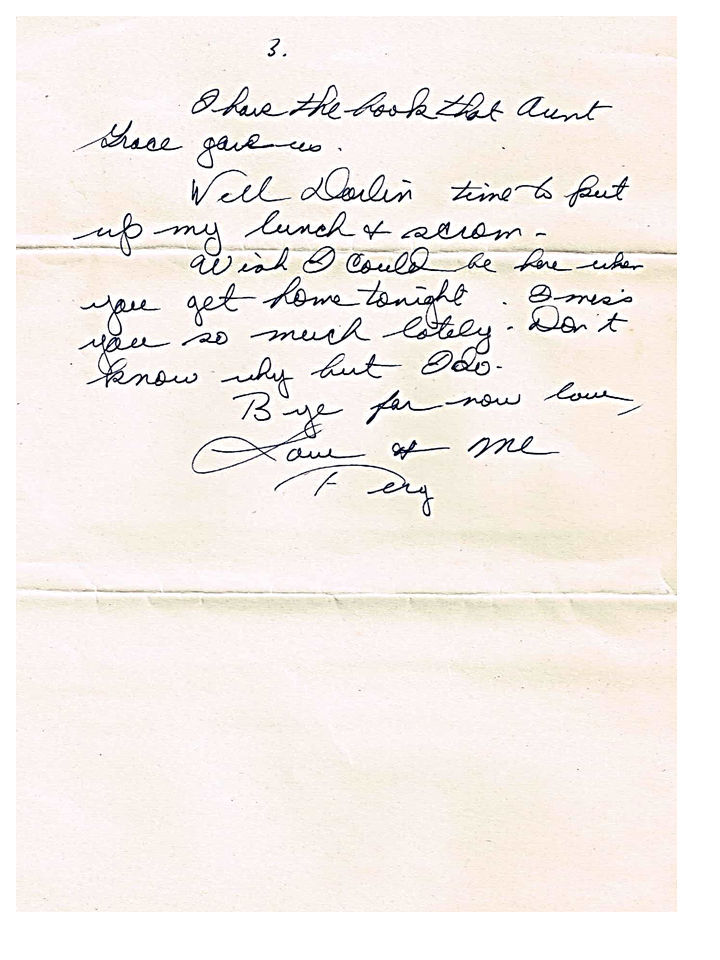 3.
I have the book that Aunt
Grace gave us.
Well Darlin time to put
up my lunch & scram -
Wish I could be here when
you get home tonight. I miss
you so much lately. Don't
know why but I do.
Bye for now love,
Love & me
Ferg